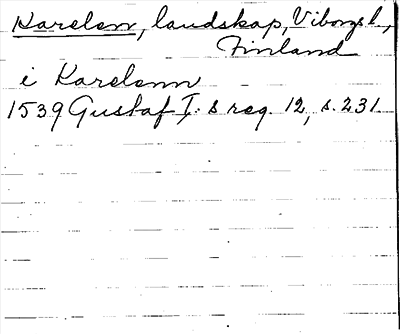 Karelen, landskap, Viborgs l.,
Finland
i Karelenn
1539 Gustaf I:s reg. 12, s. 231